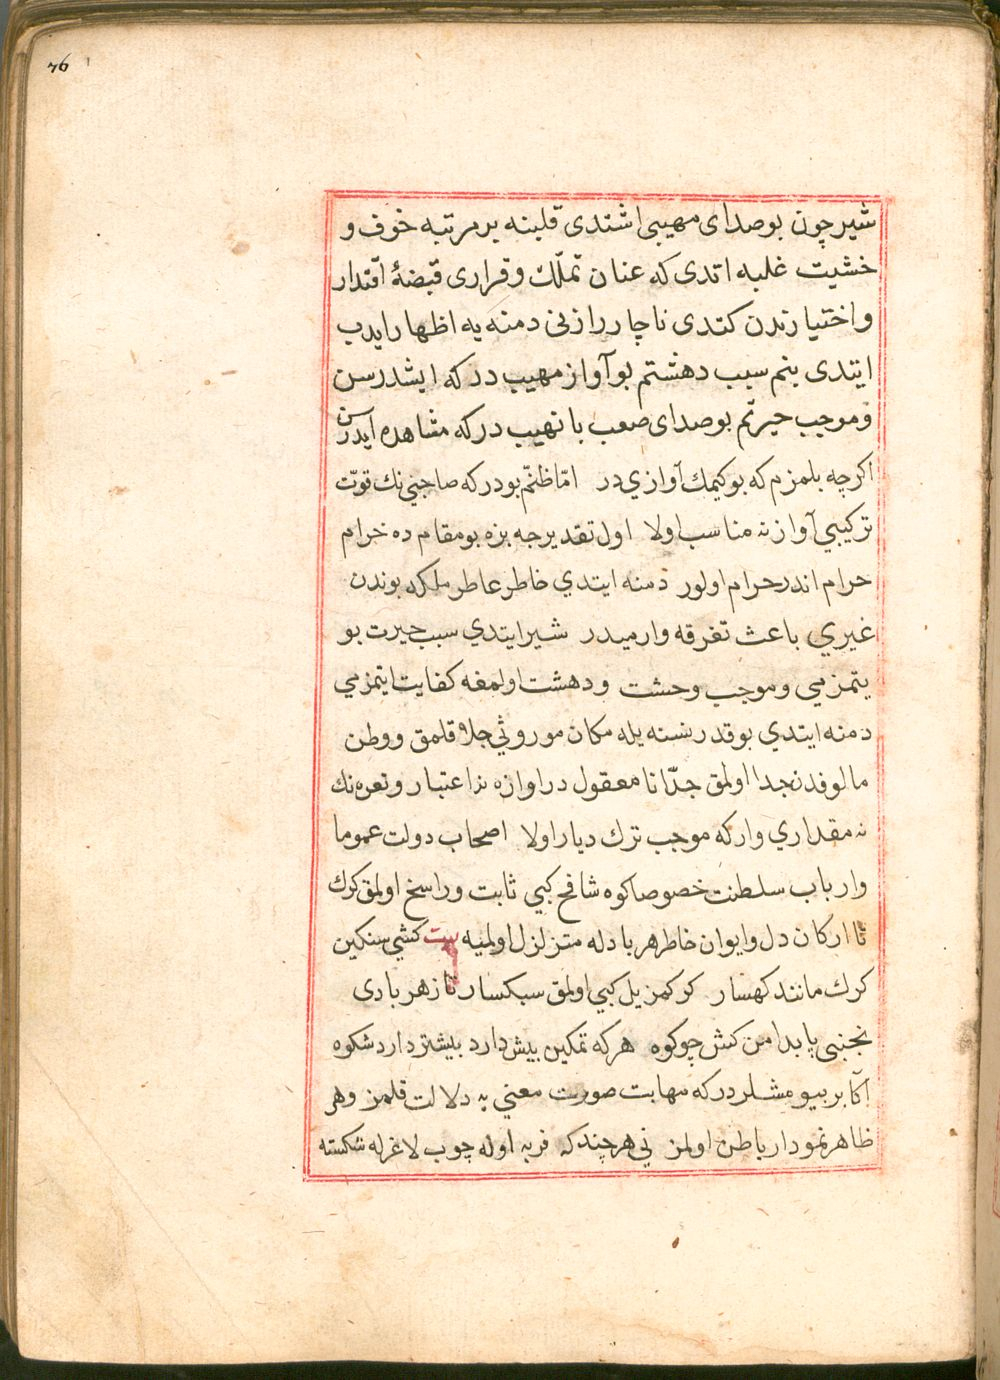 76
شیر چون بو صدای مهیبی اشتدی قلبنه بر مرتبه خوف و
خشیت غلبه اتدی که عنان تملّك و قراری قبضهٔ اقتدار
و اختیارندن کتدی ناچار رازنی دمنه یه اظهار ایدب
ایتدی بنم سبب دهشتم بو آواز مهیب در که ایشدرسن
و موجب حیرتم بو صدای صعب با نهیب در که مشاهده ایدرسن
اکرچه بلمزم که بو کیمك آوازي در امّا ظنّم بودر که صاحبي نك قوّت
ترکیبي آوازنه مناسب اولا اول تقدیرجه بزه بو مقام ده خرام
حرام اندر حرام اولور دمنه ایتدي خاطر عاطر ملکه بوندن
غیري باعث تفرقه وارمیدر شیر ایتدي سبب حیرت بو
یتمزمي و موجب وحشت و دهشت اولمغه کفایت ایتمزمي
دمنه ایتدي بو قدر نسنه یله مکان موروثي جلا قلمق و وطن
مالوفدن جدا اولمق جدّا نا معقول در اوازه نه اعتبار و نعره نك
نه مقداري وار که موجب ترك دیار اولا اصحاب دولت عموما
و ارباب سلطنت خصوصا کوه شامخ کبي ثابت و راسخ اولمق کرك
تا ارکان دل و ایوان خاطر هر بادله متزلزل اولمیه بیت کشي سنکین
کرك مانند کهسار کرکمز یل کبي اولمق سبکسار تا ز هر بادی
نجنبی پا بدامن کش چو کوه هر که تمکین بیش دارد بیشتر دارد شکوه
اکابر بیورمشلر در که مهابت صورت معني یه دلالت قلمز و هر
ظاهر نمودار باطن اولمز ني هر چند که فربه اوله چوب لاغرله شکسته